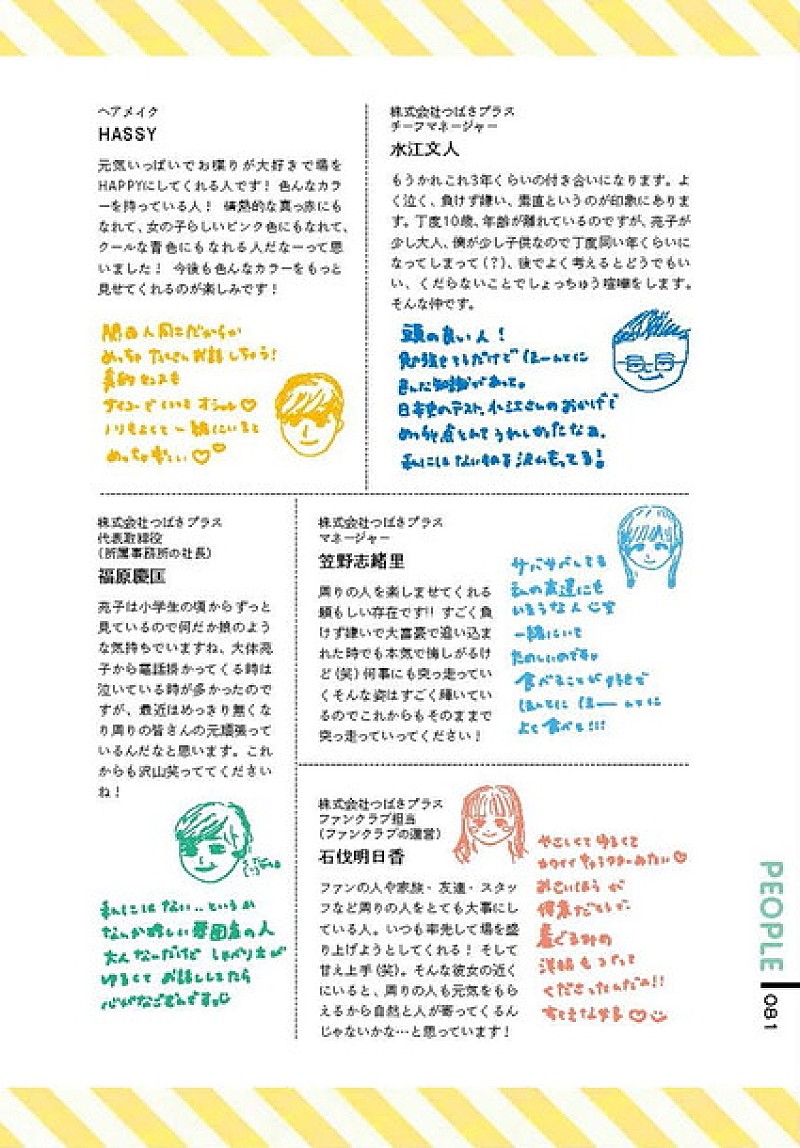 ヘアメイク
HASSY
元気いっぱいでお喋りが大好きで場を
HAPPYにしてくれる人です！ 色んなカラ
ーを持っている人！ 情熱的な真っ赤にも
なれて、女の子らしいピンク色にもなれて、
クールな青色にもなれる人だなーって思
いました！ 今後も色んなカラーをもっと
見せてくれるのが楽しみです！
関西人同士だからか
めっちゃ たくさんお話しちゃう！
ノリもよくて一緒にいると
めっちゃ楽しい♡♡
株式会社つばさプラス
チーフマネージャー
水江文人
もうかれこれ3年くらいの付き合いになります。よ
く泣く、負けず嫌い、素直というのが印象にありま
す。丁度10歳、年齢が離れているのですが、亮子が
少し大人、僕が少し子供なので丁度同い年くらいに
なってしまって（？）、後でよく考えるとどうでもい
い、くだらないことでしょっちゅう喧嘩をします。
そんな仲です。
頭の良い人！
勉強せてるだけで ほーんとに
色んな知識があって。
日本史のテスト、水江さんのおかげで
めっちゃ点とれて うれしかったなぁ。
私にはないものを沢山もってる！
株式会社つばさプラス
代表取締役
（所属事務所の社長）
福原慶匡
亮子は小学生の頃からずっと
見ているので何だか娘のよう
な気持ちでいますね、大体亮
子から電話掛かってくる時は
泣いている時が多かったので
すが、最近はめっきり無くな
り周りの皆さんの元頑張って
いるんだなと思います。これ
からも沢山笑っててください
ね！
私にはない‥というか
なんか珍しい雰囲気の人
大人なーだけど しゃべり方が
ゆるくて お話ししてたら
心がなごむんです
株式会社つばさプラス
マネージャー
笠野志緒里
周りの人を楽しませてくれる
頼もしい存在です!! すごく負
けず嫌いで大富豪で追い込ま
れた時でも本気で悔しがるけ
ど（笑）何事にも突っ走ってい
くそんな姿はすごく輝いてい
るのでこれからもそのままで
突っ走っていってください！
サバサバしてる
私の友達にも
いそうな人で
一緒にいて
たのしいのです
食べることが好きで
ほんとに ほーんとに
よく食べる!!!
株式会社つばさプラス
ファンクラブ担当
（ファンクラブの運営）
石伐明日香
ファンの人や家族・友達・スタッ
フなど周りの人をとても大事にし
ている人。いつも率先して場を盛
り上げようとしてくれる！ そして
甘え上手（笑）。そんな彼女の近く
にいると、周りの人も元気をもら
えるから自然と人が寄ってくるん
じゃないかな…と思っています！
やさしくて ゆるくて
カワイイ キャラクターみたい♡
おさいほうが
得意だとして
着ぐるみの
洋服もつくって
くださったんだぁ!!
すてきな女子♡
PEOPLE
081